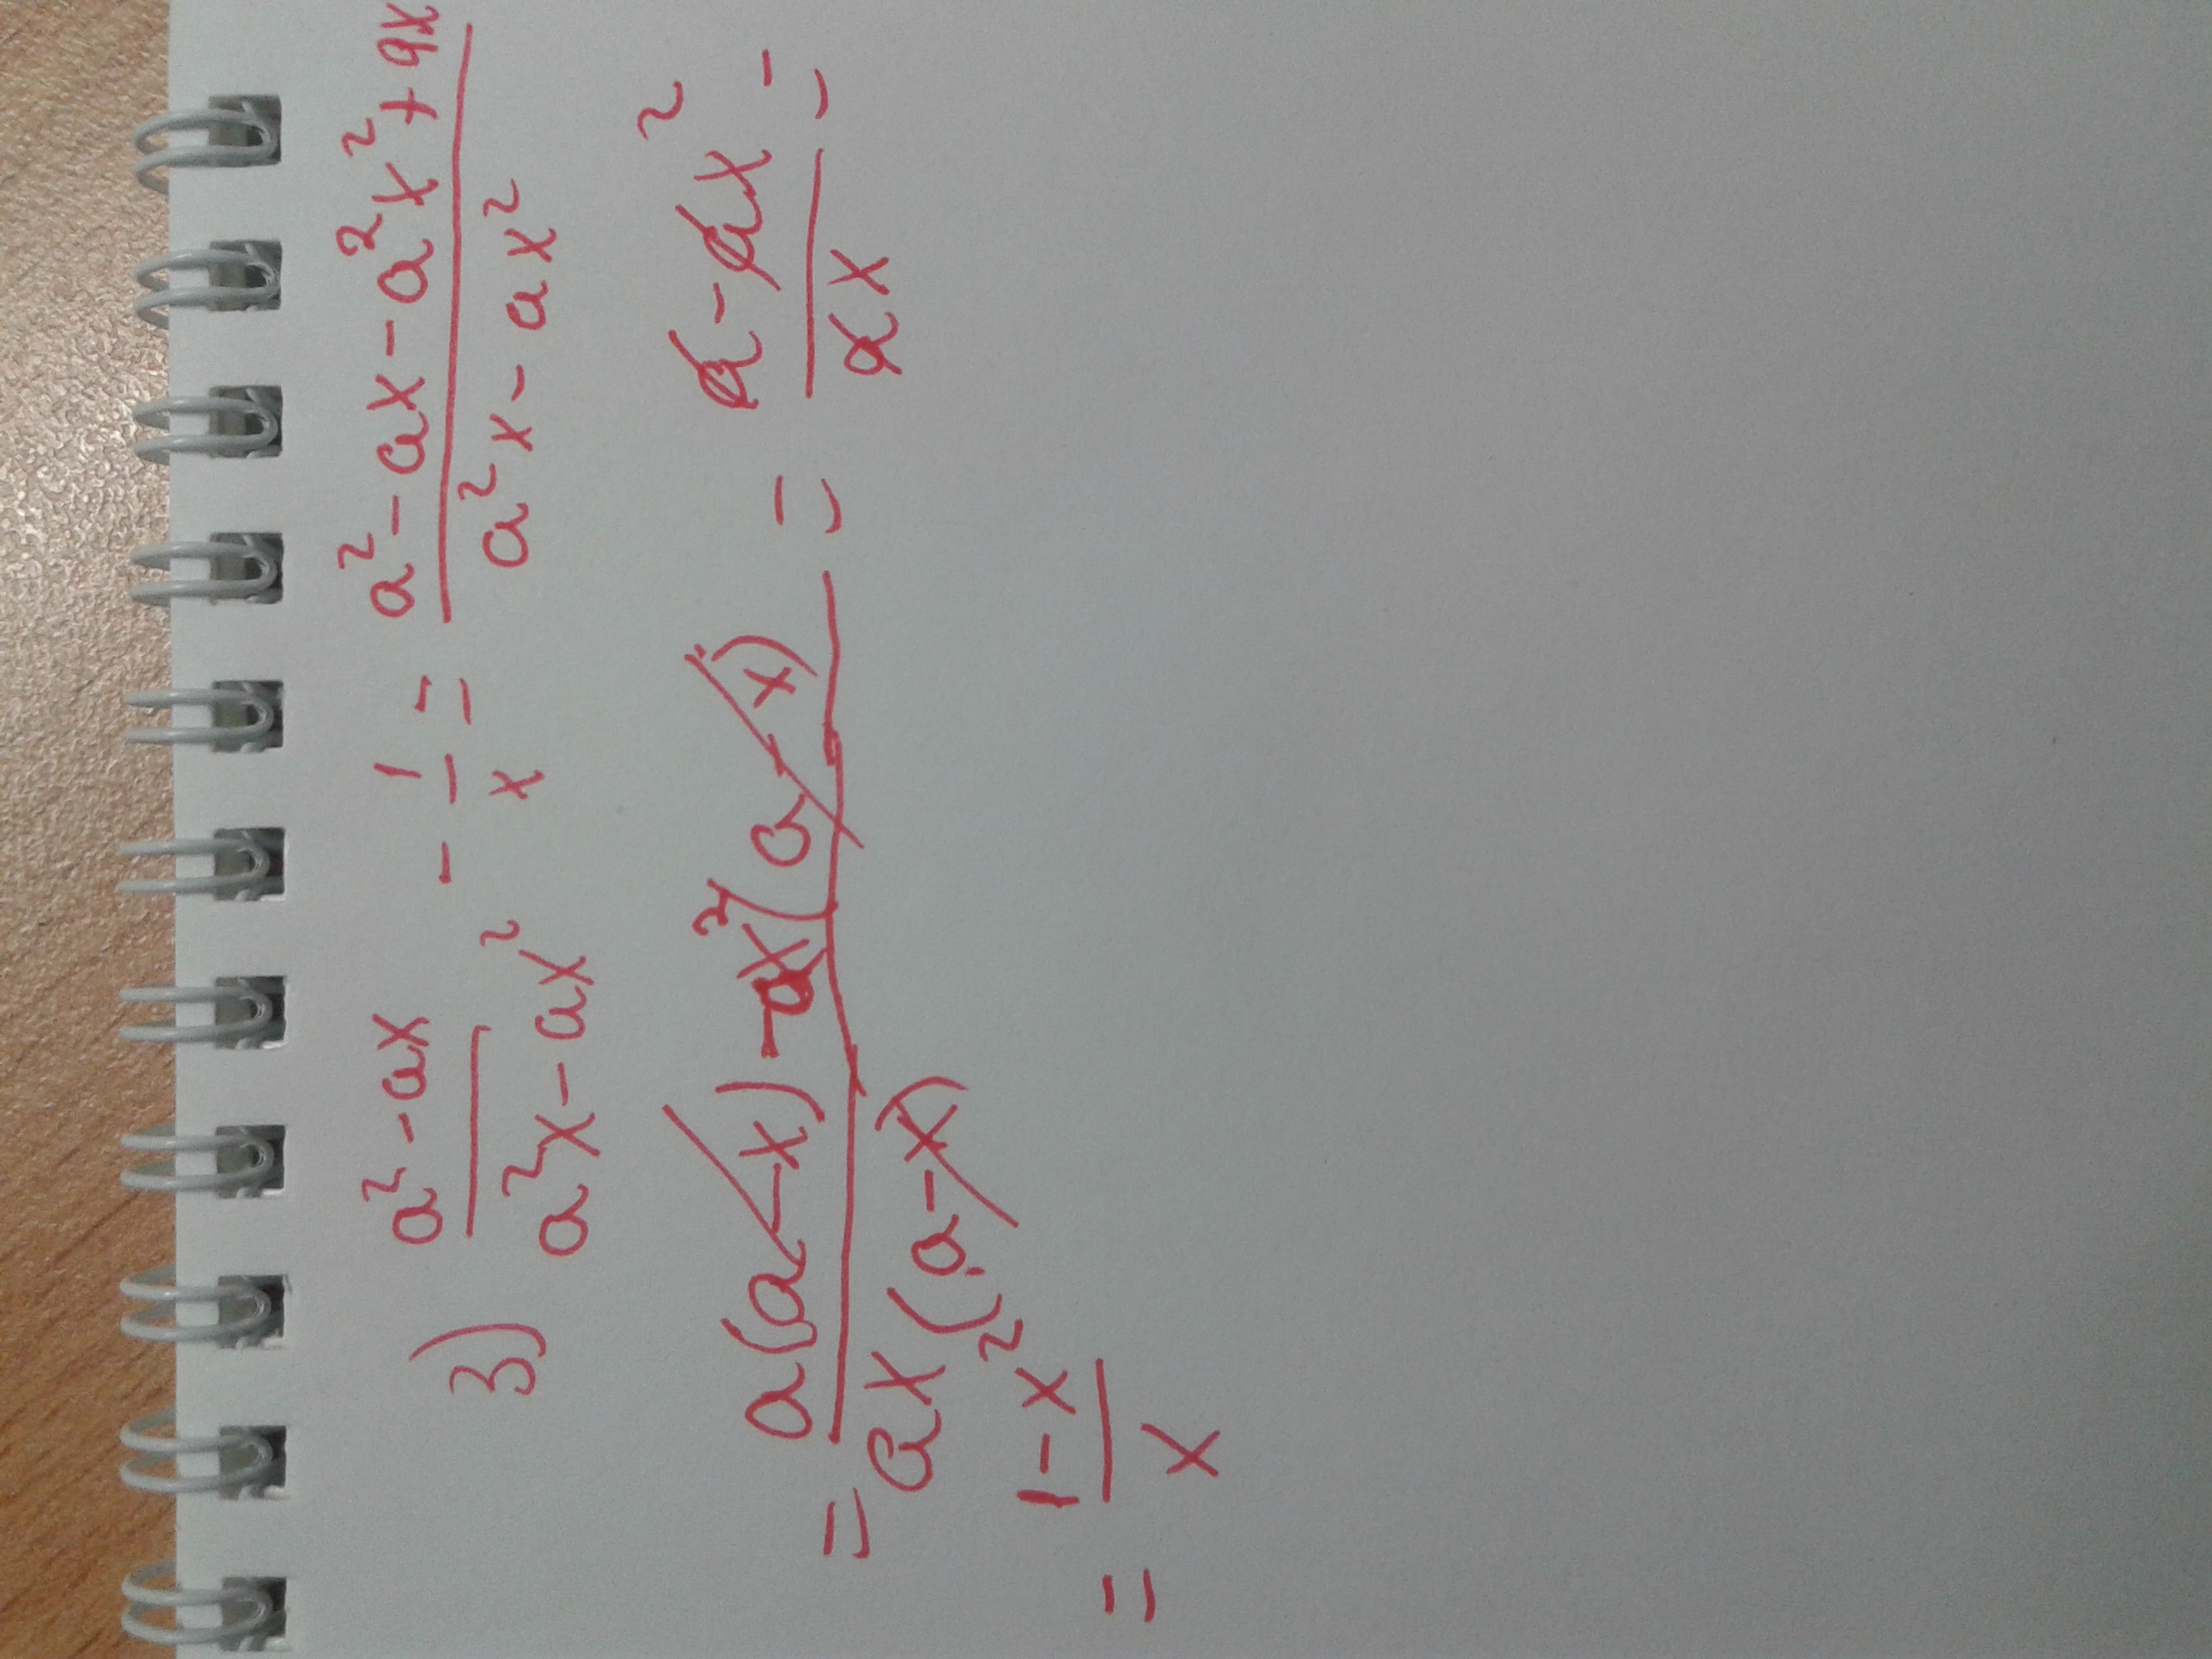 3) (a²-ax)/(a²x-ax²) - 1/x = (a²-ax-a²x²+ax)/(a²x-ax²)
= (a(a-x)-ax²(a-x))/(ax(a-x)) = (a-ax²)/(ax) =
= (1-x²)/x